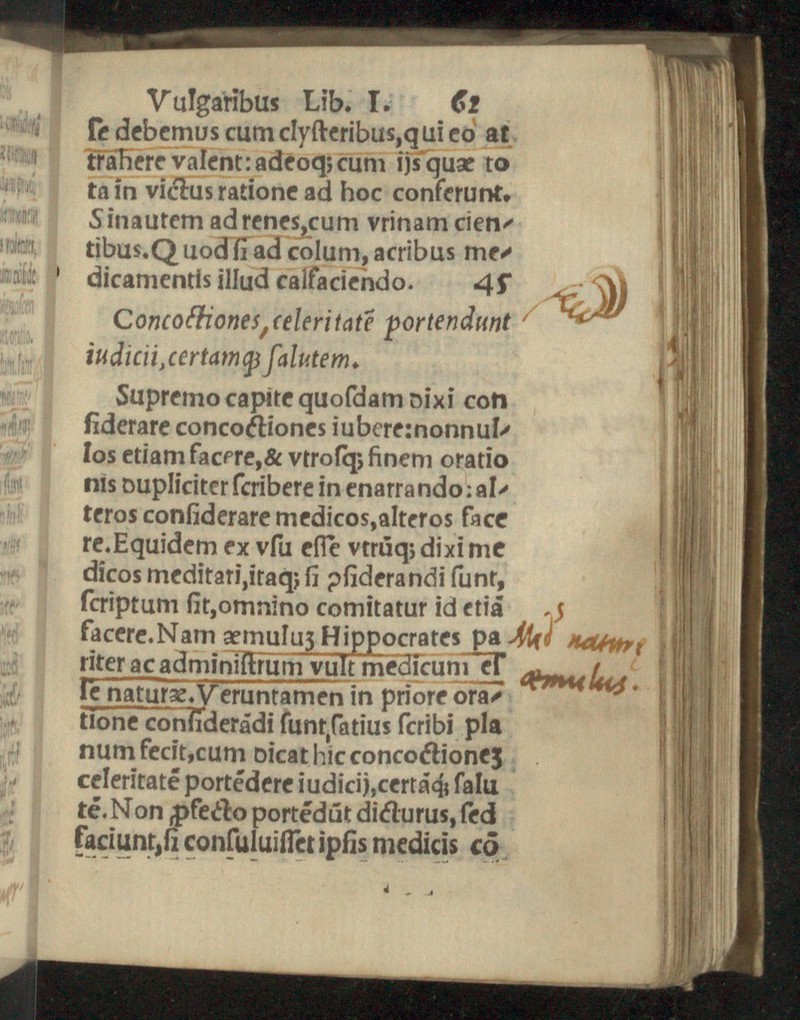 Vulgaribus Lib. I. 61
ſe debemus cum clyſteribus,qui eo at
trahere valent: adeoq; cum ijs quæ to
ta in victus ratione ad hoc conferunt.
Sinautem ad renes,cum vrinam cien⸗
tibus. Quod ſi ad colum, acribus me⸗
dicamentis illud calfaciendo. 45
Concoctiones, celeritatē portendunt
iudicii,certamq; ſalutem.
Supremo capite quoſdam dixi con
ſiderare concoctiones iubere:nonnul⸗
los etiam facere,& vtroſq; finem oratio
nis dupliciter ſcribere in enarrando: al⸗
teros conſiderare medicos,alteros face
re.Equidem ex vſu eſſe vtrūq; dixi me
dicos meditari,itaq; ſi ꝯſiderandi ſunt,
ſcriptum ſit,omnino comitatur id etiā
facere.Nam æmuluʒ Hippocrates pa
riter ac adminiſtrum vult medicum eſ
ſe naturæ. Veruntamen in priore ora⸗
tione conſiderādi ſunt,ſatius ſcribi pla
num fecit,cum dicat hic concoctioneʒ
celeritatē portēdere iudicij,certāq; ſalu
tē. Non ꝓfecto portēdūt dicturus, ſed
faciunt,ſi conſuluiſſet ipſis medicis cō
naturæ
æmulus.